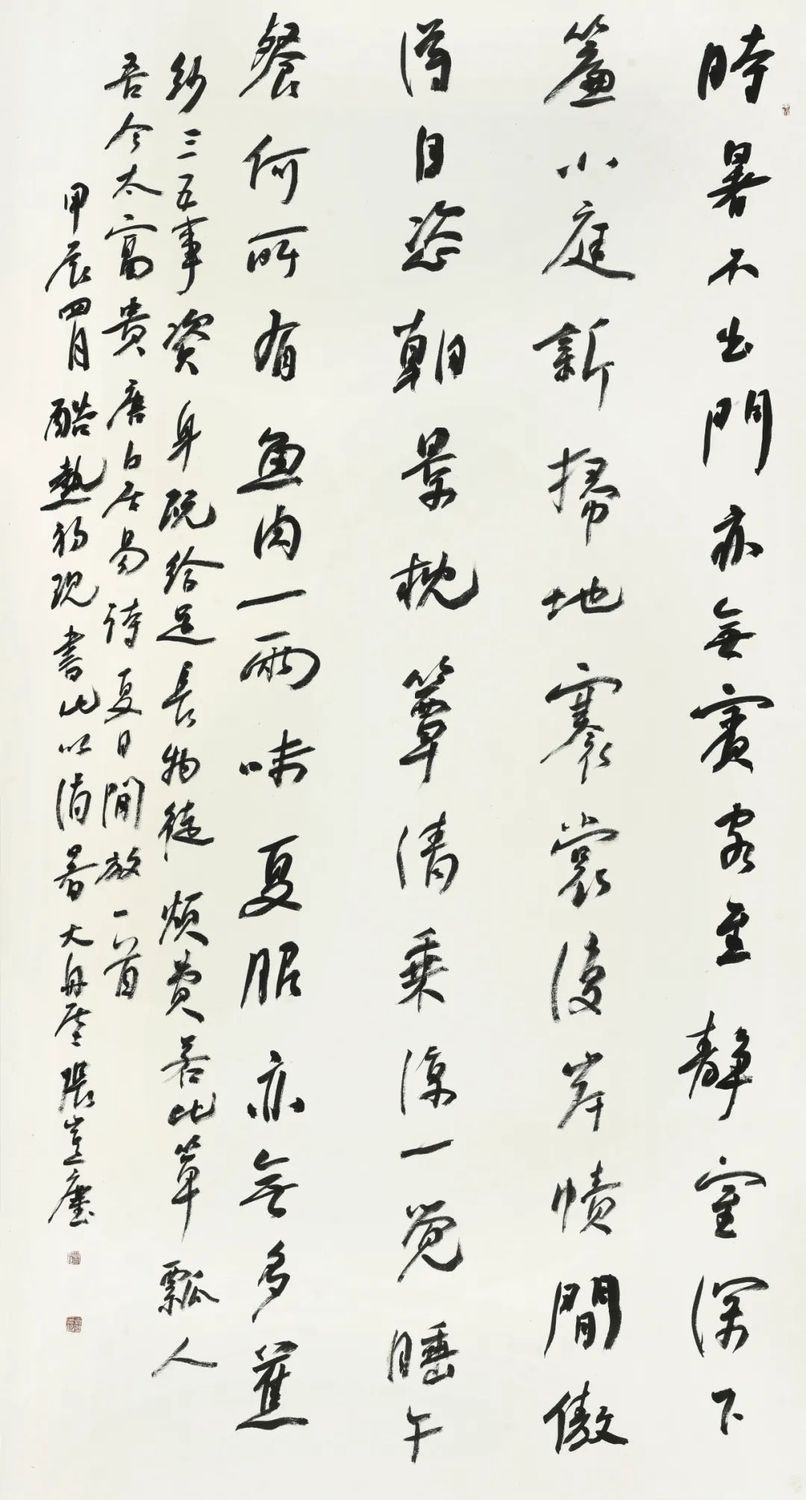 時暑不出門亦無賓客至靜室深下
簾小庭新掃地褰裳復岸幘閒傲
得自恣朝景枕簟清乘涼一覺睡午
餐何所有魚肉一兩味夏服亦無多蕉
紗三五事資身既給足長物徒煩費若比簞瓢人
吾今太富貴唐白居易詩夏日閒放一首
甲辰四月酷熱初現書此以消暑大舟張